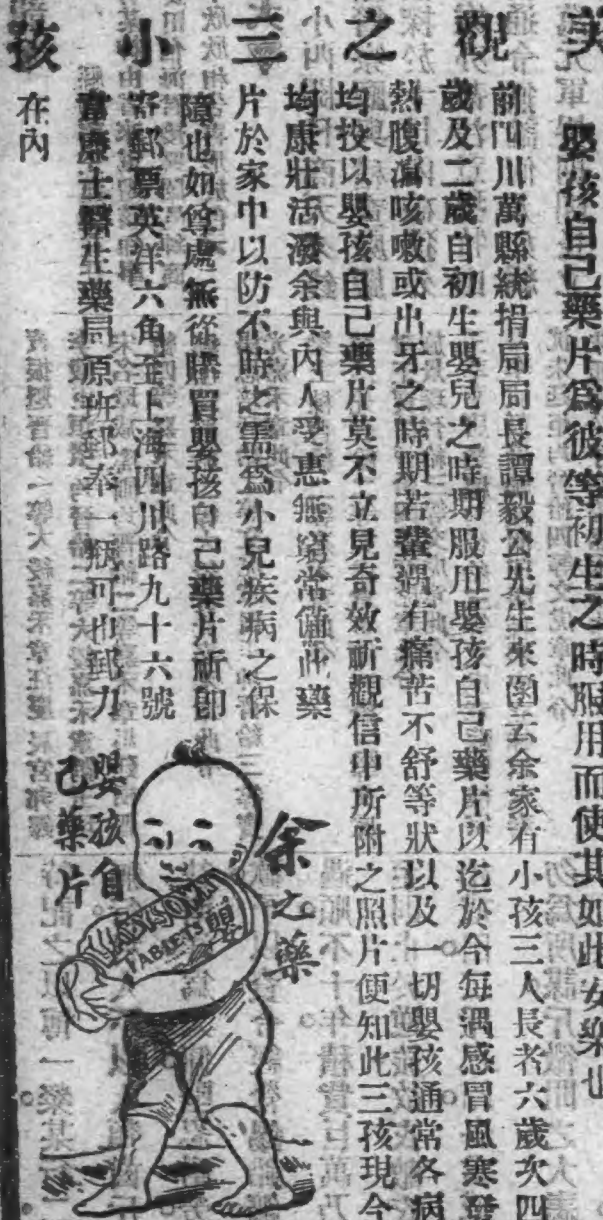 美觀之三小孩
嬰孩自己藥片爲彼等初生之時服用而使其如此安樂也
前四川萬縣統捐局局長譚毅公先生來函云余家有小孩三人長者六歲次四
歲及二歲自初生嬰兒之時期服用嬰孩自己藥片以迄於今每遇感冒風寒發
熱腹瀉咳嗽或出牙之時期若輩遇有痛苦不舒等狀以及一切嬰孩通常各病
均投以嬰孩自己藥片莫不立見奇效祈觀信中所附之照片便知此三孩現今
均康壯活潑余與內人受惠無窮常備此藥
片於家中以防不時之需爲小兒疾病之保
障也如尊處無從購買嬰孩自己藥片祈即
寄郵票英洋六角至上海四川路九十六號
韋廉士醫生藥局原班郵奉一瓶可也郵力
在內
余之藥
嬰孩自
己藥片
BABYSOWN
TABLETS